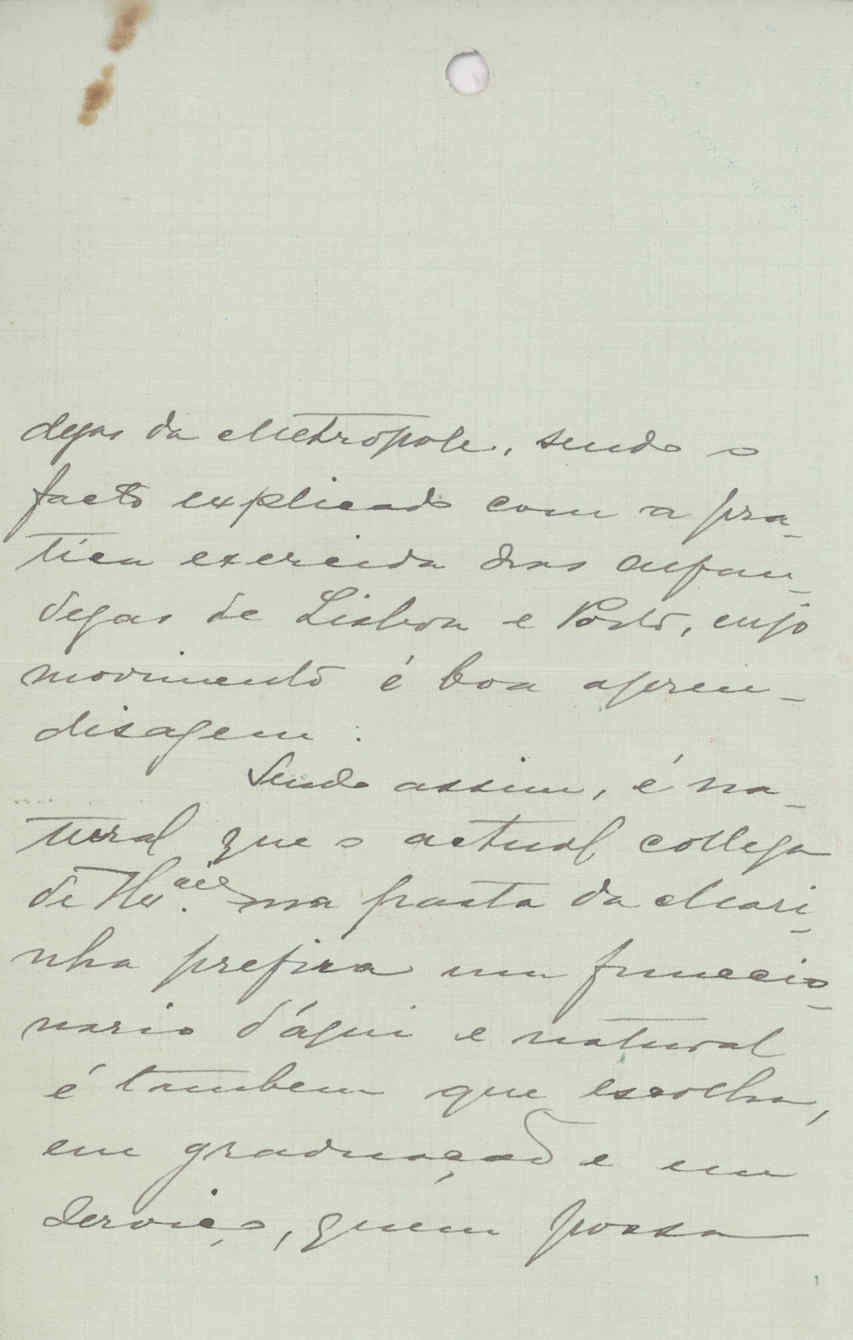 degas da Metropole, sendo o
facto explicado com a pra-
tica exercida nas alfan-
degas de Lisboa e Porto, cujo
movimento é boa apren-
disagem.
Sendo assim, é na-
tural que o actual collega
de na pasta da Mari-
nha prefira um funccio-
nario d'aqui e natural
é tambem que escolha,
em graduação e em
serviço, quem possa